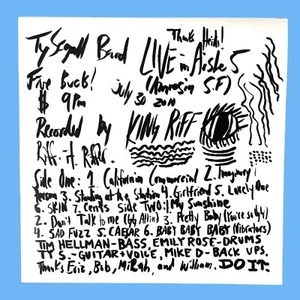 Ty Segall Band
Think Hih!
LIVE in Aisle 5
Five Bucks!
(Amnesia S.F.)
$ 9pm
July 30 2011
Recorded by KING RIFF
Riff-A-
Side One: 1. California Commercial 2. Imaginary
Person 3. Standing at the Station 4. Girlfriend 5. Lovely One
6. SKIN 7. Cents Side Two: 1 My Sunshine
2. Don't Talk to me (GG Allin) 3. Pretty Baby
4. SAD FUZZ 5. CAESAR 6. BABY BABY BABY (Vibrators)
TIM HELLMAN-BASS, EMILY ROSE-DRUMS
TY S-GUITAR+VOICE, MIKE D-BACK UPS.
Thanks Eric, Bob, Mikah, and William. DO IT.